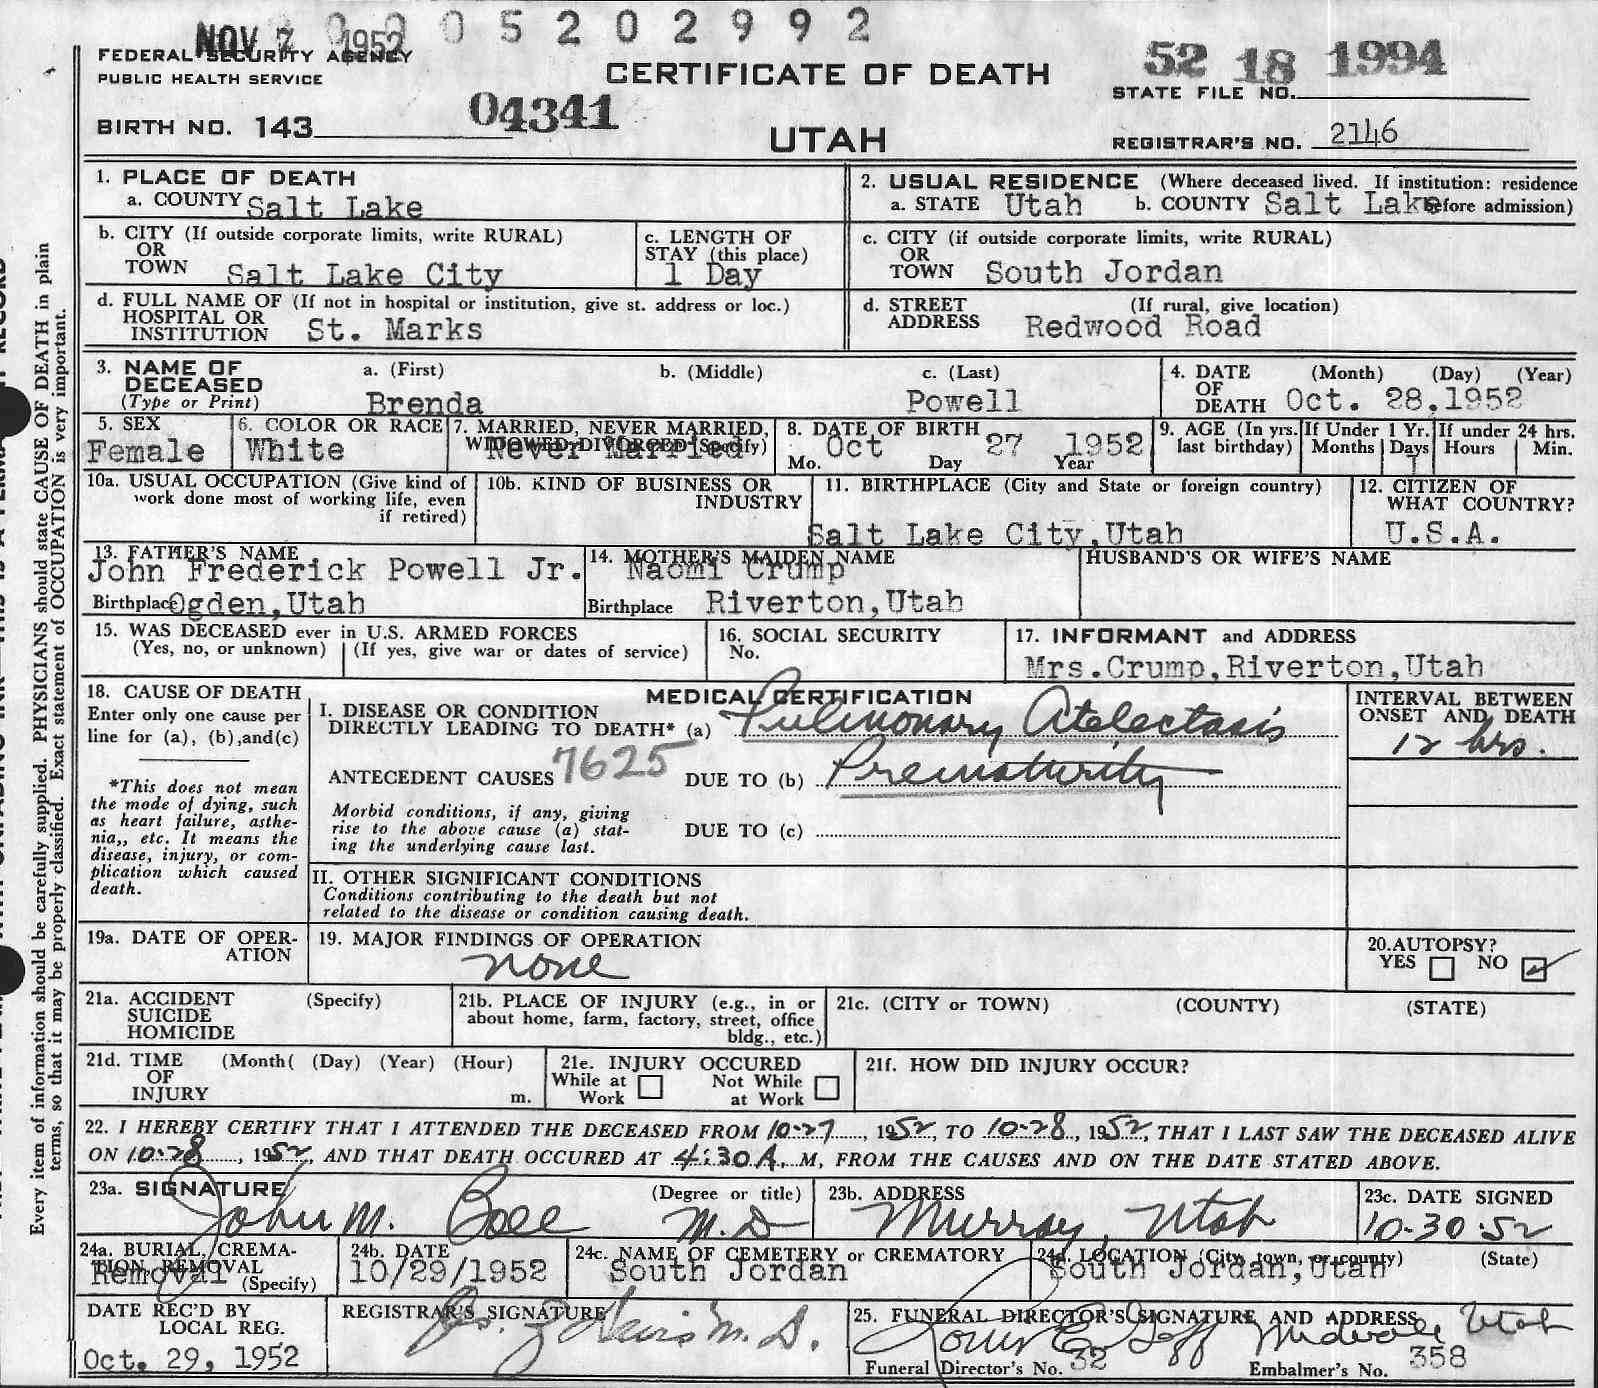 NOV 7 1952 0005202992
FEDERAL SECURITY AGENCY
PUBLIC HEALTH SERVICE
CERTIFICATE OF DEATH
52 18 1994
STATE FILE NO.
BIRTH NO. 143 04341
UTAH
REGISTRAR'S NO. 2146
1. PLACE OF DEATH
a. COUNTY Salt Lake
2. USUAL RESIDENCE (Where deceased lived. If institution: residence before admission)
a. STATE Utah b. COUNTY Salt Lake
b. CITY (If outside corporate limits, write RURAL)
OR
TOWN Salt Lake City
c. LENGTH OF
STAY (this place)
1 Day
c. CITY (if outside corporate limits, write RURAL)
OR
TOWN South Jordan
d. FULL NAME OF (If not in hospital or institution, give st. address or loc.)
HOSPITAL OR
INSTITUTION St. Marks
d. STREET (If rural, give location)
ADDRESS Redwood Road
3. NAME OF
DECEASED
(Type or Print)
a. (First) b. (Middle) c. (Last)
Brenda Powell
4. DATE (Month) (Day) (Year)
OF
DEATH Oct. 28,1952
5. SEX
Female
6. COLOR OR RACE
White
7. MARRIED, NEVER MARRIED,
WIDOWED, DIVORCED (Specify)
Never Married
8. DATE OF BIRTH
Oct 27 1952
Mo. Day Year
9. AGE (In yrs. last birthday)
If Under 1 Yr. If under 24 hrs.
Months Days Hours Min.
1
10a. USUAL OCCUPATION (Give kind of
work done most of working life, even
if retired)
10b. KIND OF BUSINESS OR
INDUSTRY
11. BIRTHPLACE (City and State or foreign country)
Salt Lake City,Utah
12. CITIZEN OF
WHAT COUNTRY?
U.S.A.
13. FATHER'S NAME
John Frederick Powell Jr.
Birthplace Ogden,Utah
14. MOTHER'S MAIDEN NAME
Naomi Crump
Birthplace Riverton,Utah
HUSBAND'S OR WIFE'S NAME
15. WAS DECEASED ever in U.S. ARMED FORCES
(Yes, no, or unknown) (If yes, give war or dates of service)
16. SOCIAL SECURITY
No.
17. INFORMANT and ADDRESS
Mrs.Crump,Riverton,Utah
18. CAUSE OF DEATH
Enter only one cause per
line for (a), (b),and(c)
*This does not mean
the mode of dying, such
as heart failure, asthe-
nia,, etc. It means the
disease, injury, or com-
plication which caused
death.
MEDICAL CERTIFICATION
I. DISEASE OR CONDITION
DIRECTLY LEADING TO DEATH* (a) Pulmonary Atelectasis
INTERVAL BETWEEN
ONSET AND DEATH
12 hrs.
ANTECEDENT CAUSES 7625 DUE TO (b) Prematurity
Morbid conditions, if any, giving
rise to the above cause (a) stat-
ing the underlying cause last.
DUE TO (c)
II. OTHER SIGNIFICANT CONDITIONS
Conditions contributing to the death but not
related to the disease or condition causing death.
19a. DATE OF OPER-
ATION
19. MAJOR FINDINGS OF OPERATION
none
20.AUTOPSY?
YES NO
21a. ACCIDENT (Specify)
SUICIDE
HOMICIDE
21b. PLACE OF INJURY (e.g., in or
about home, farm, factory, street, office
bldg., etc.)
21c. (CITY or TOWN) (COUNTY) (STATE)
21d. TIME (Month( (Day) (Year) (Hour)
OF
INJURY m.
21e. INJURY OCCURED
While at Work Not While at Work
21f. HOW DID INJURY OCCUR?
22. I HEREBY CERTIFY THAT I ATTENDED THE DECEASED FROM 10-27, 1952, TO 10-28, 1952, THAT I LAST SAW THE DECEASED ALIVE
ON 10-28, 1952, AND THAT DEATH OCCURED AT 4:30 A. M, FROM THE CAUSES AND ON THE DATE STATED ABOVE.
23a. SIGNATURE (Degree or title)
John M. M.D
23b. ADDRESS
Murray, Utah
23c. DATE SIGNED
10-30-52
24a. BURIAL, CREMA-
TION REMOVAL
(Specify)
Removal
24b. DATE
10/29/1952
24c. NAME OF CEMETERY or CREMATORY
South Jordan
24d. LOCATION (City, town, or county) (State)
South Jordan,Utah
DATE REC'D BY
LOCAL REG.
Oct. 29, 1952
REGISTRAR'S SIGNATURE
M. D.
25. FUNERAL DIRECTOR'S SIGNATURE AND ADDRESS
Midvale Utah
Funeral Director's No. 32 Embalmer's No. 358
Every item of information should be carefully supplied. PHYSICIANS should state CAUSE OF DEATH in plain
terms, so that it may be properly classified. Exact statement of OCCUPATION is very important.